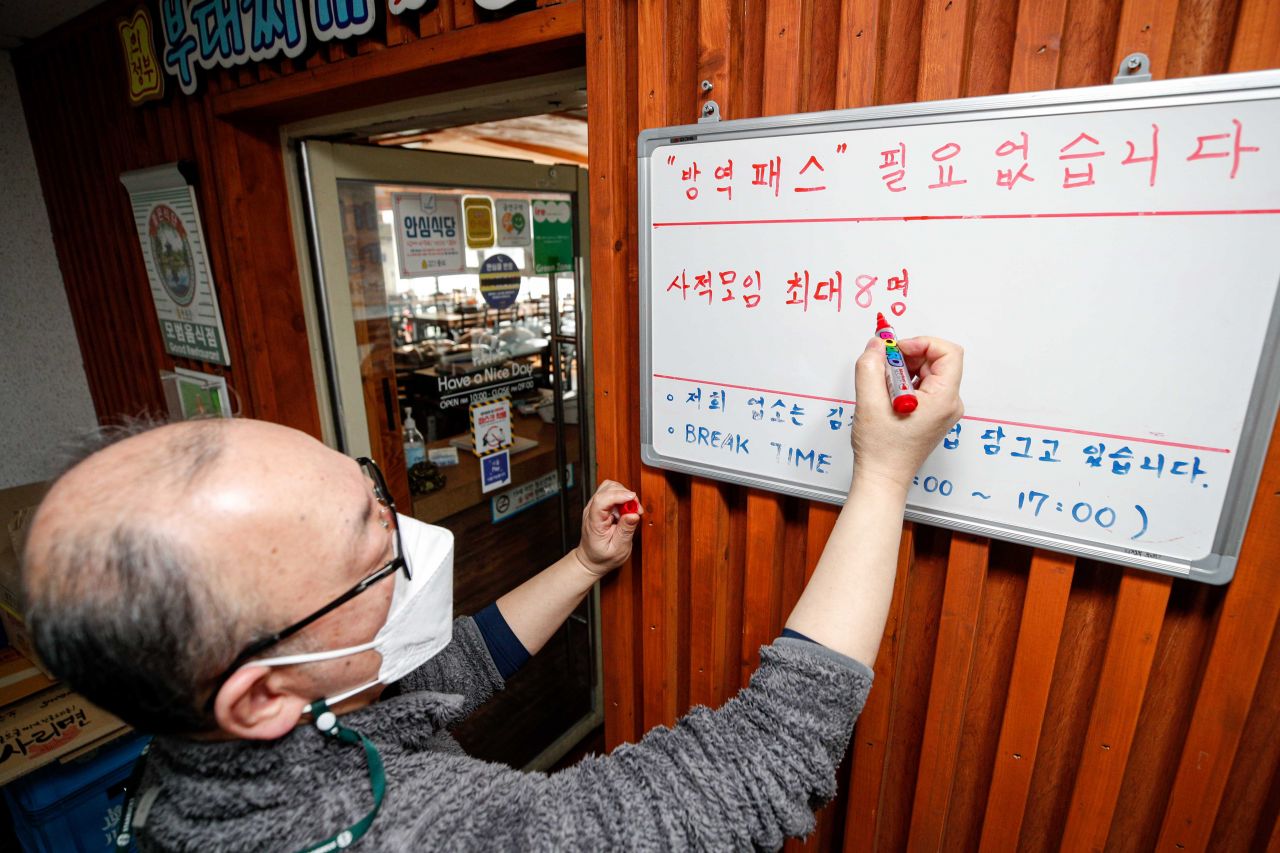 의정부
부대찌개
모범음식점
Good Restaurant
안심식당
Green Zone
Have a Nice Day
OPEN AM 10:00 - CLOSE PM 09:00
"방역패스" 필요없습니다
사적모임 최대8명
저희 업소는 김 담그고 있습니다.
BREAK TIME :00 ~ 17:00)
사리면